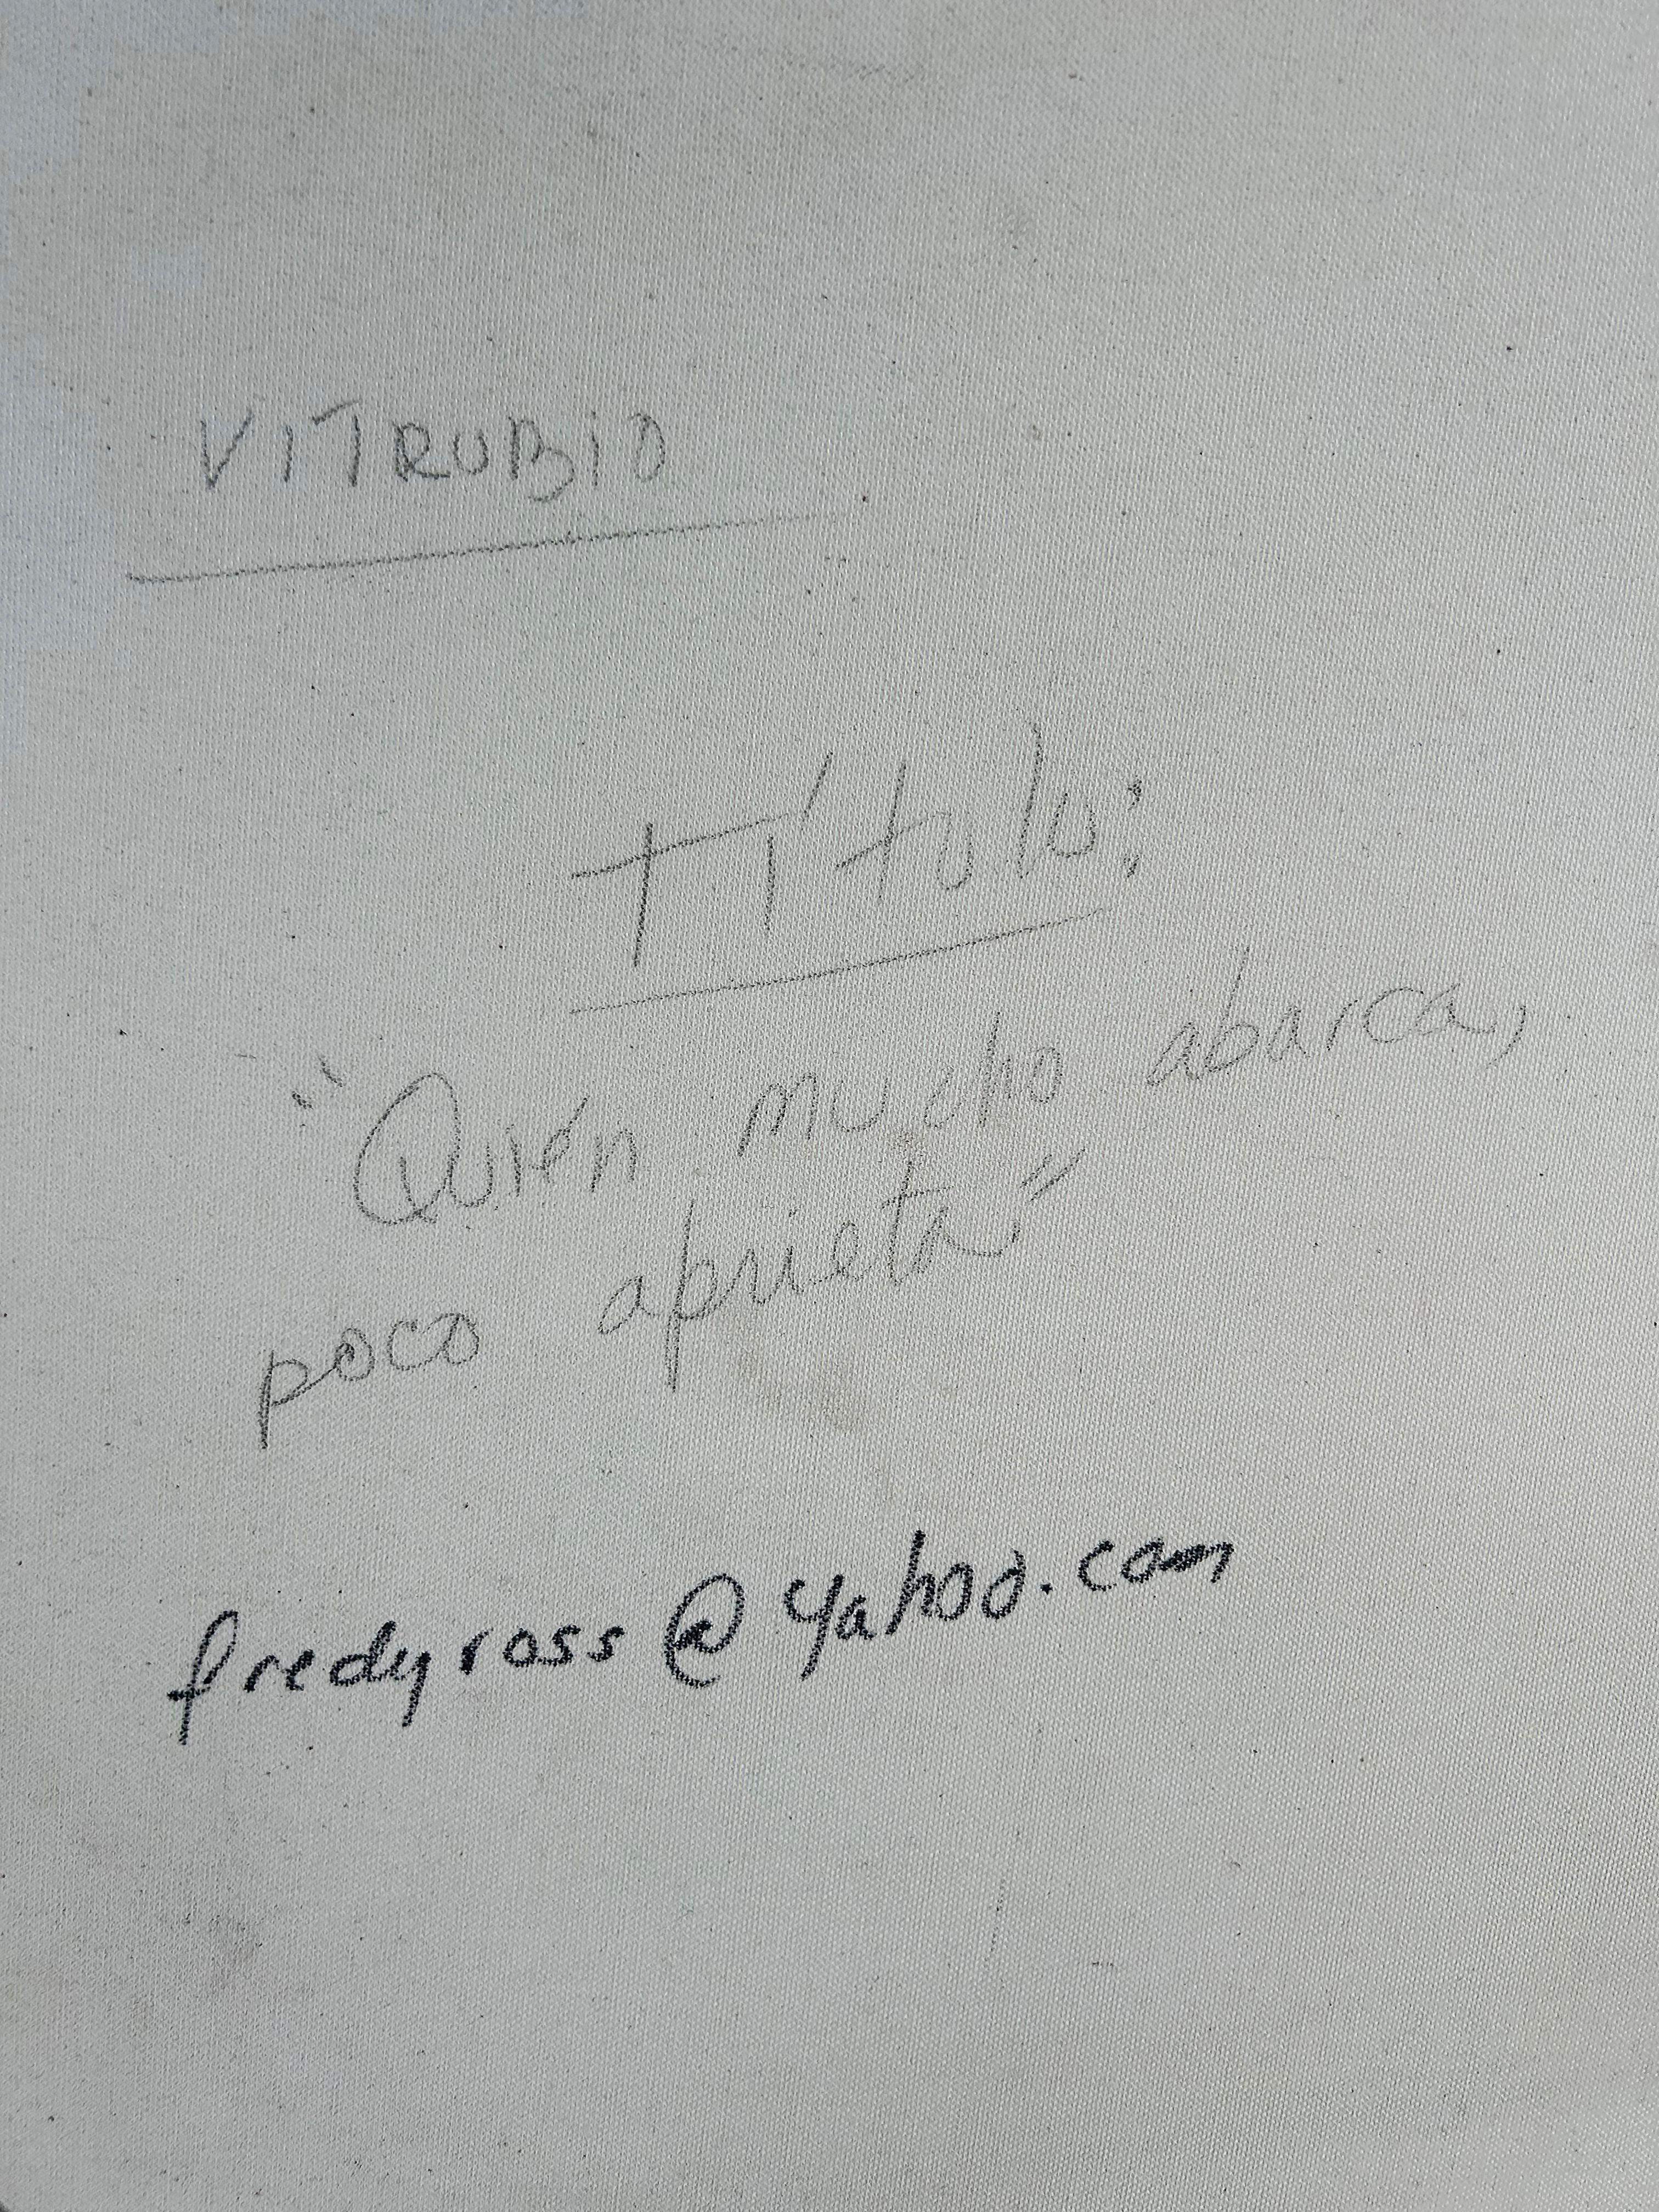 VITRUBIO
Título:
"Quién mucho abarca,
poco aprieta."
fredyross@yahoo.com